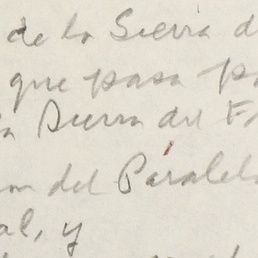 de la Sierra d
que pasa p
a Sierra del F
n del Paralel
al, y